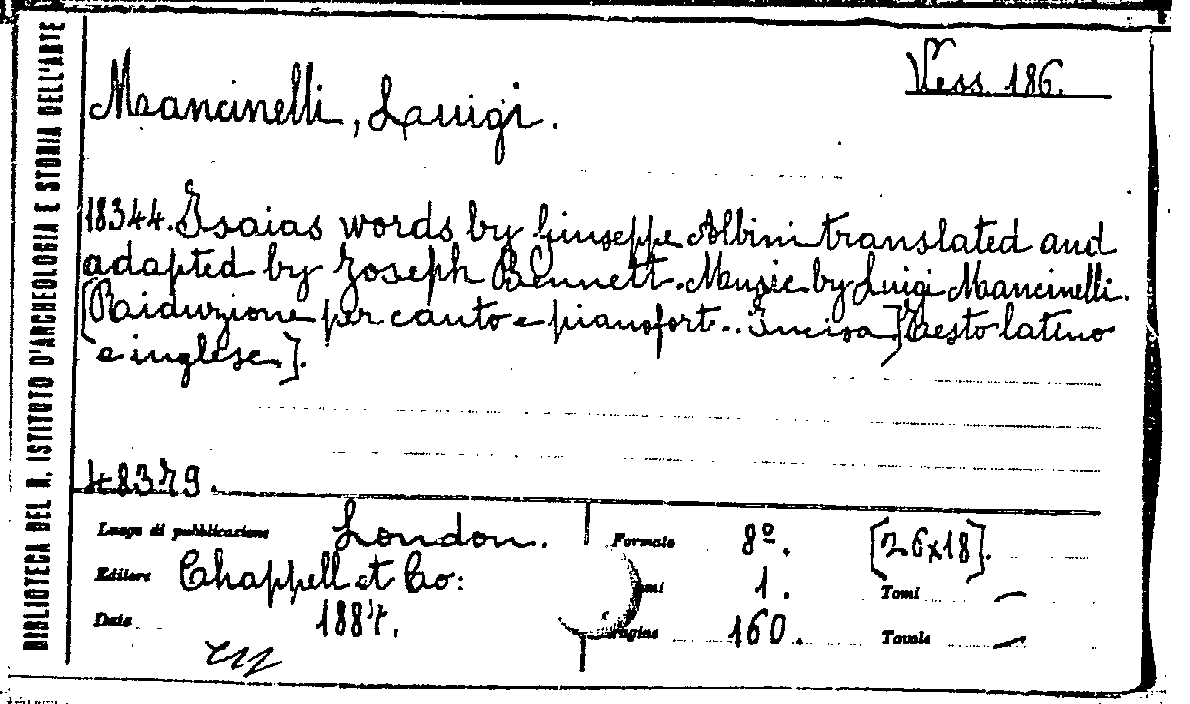 BIBLIOTECA DEL R. ISTITUTO D'ARCHEOLOGIA E STORIA DELL'ARTE
Vess. 186.
Mancinelli, Luigi.
18344. Isaias words by Giuseppe Albini translated and
adapted by Joseph Bennett. Music by Luigi Mancinelli.
[Riduzione per canto e pianofort.. Incisa] Testo latino
e inglese].
48379.
Luogo di pubblicazione London. Formato 8º. [26x18].
Editore Chappell et Co: 1. Tomi —
Data 1887. Pagine 160. Tavole —